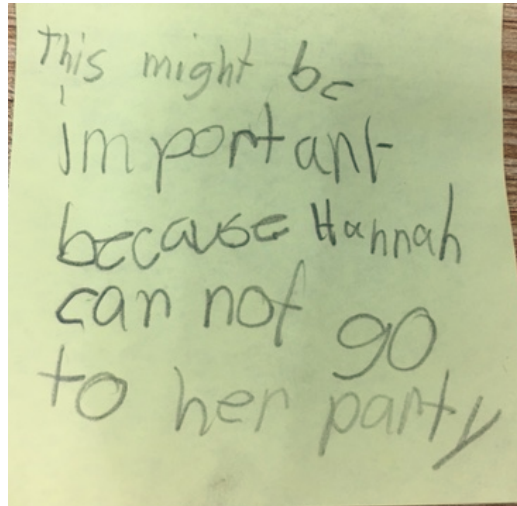 This might be
important
because Hannah
can not go
to her party